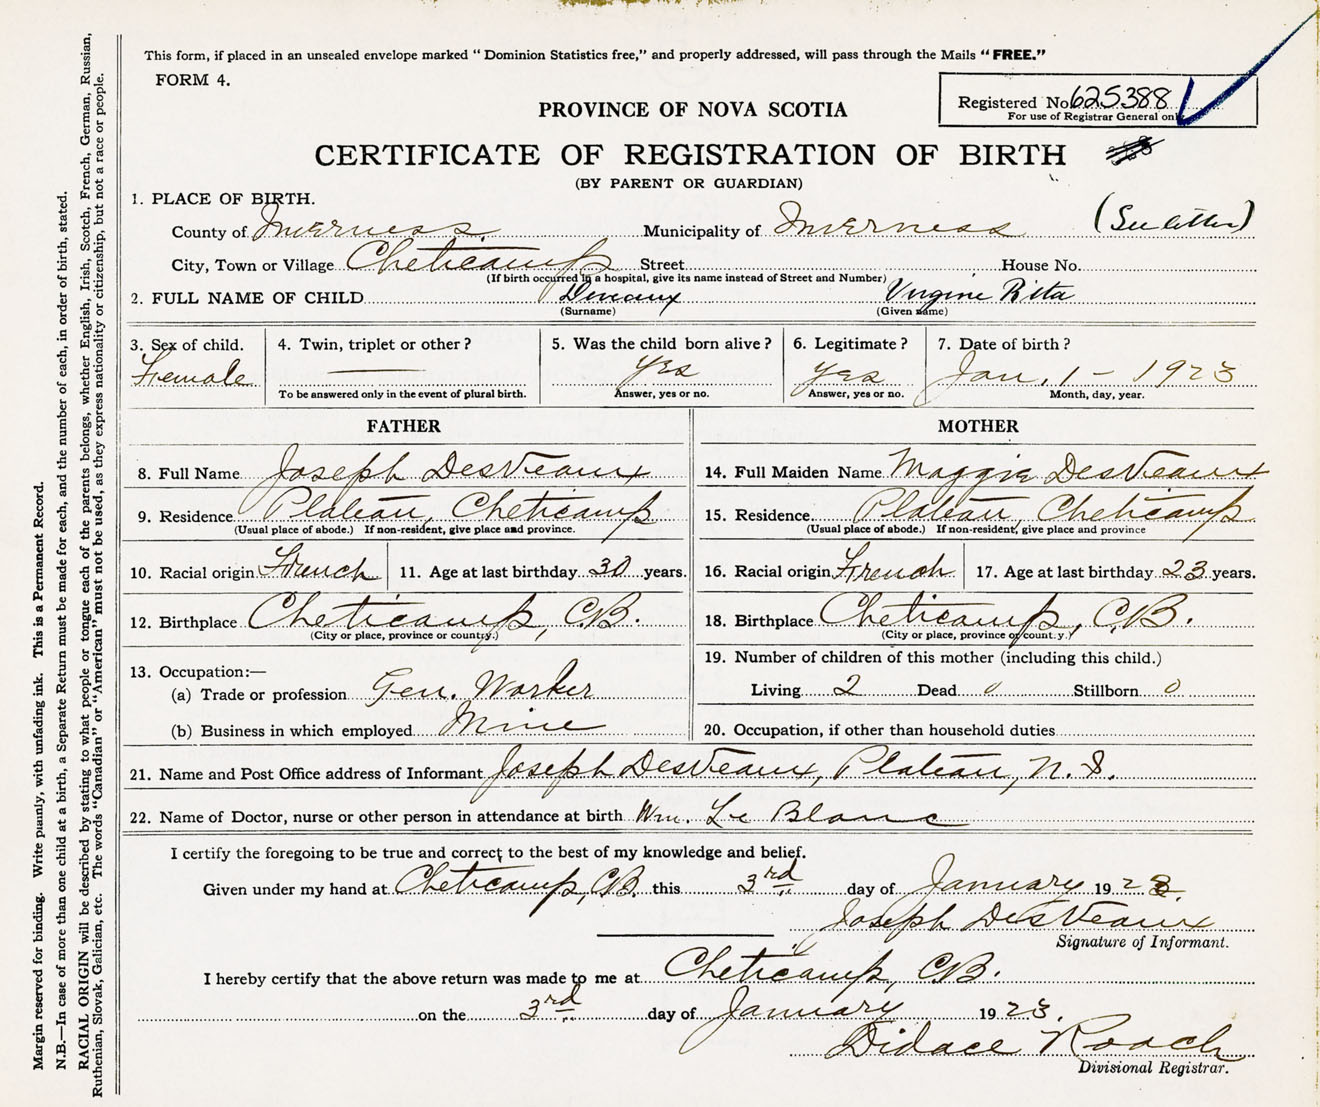 This form, if placed in an unsealed envelope marked “Dominion Statistics free,” and properly addressed, will pass through the Mails “FREE.”
FORM 4.
Registered No. 625388
For use of Registrar General only
PROVINCE OF NOVA SCOTIA
CERTIFICATE OF REGISTRATION OF BIRTH
(BY PARENT OR GUARDIAN)
1. PLACE OF BIRTH.
County of Inverness Municipality of Inverness (See letter)
City, Town or Village Cheticamp Street House No.
(If birth occurred in a hospital, give its name instead of Street and Number)
2. FULL NAME OF CHILD Deveaux Virginie Rita
(Surname) (Given name)
3. Sex of child. 4. Twin, triplet or other? 5. Was the child born alive? 6. Legitimate? 7. Date of birth?
Female yes yes Jan. 1 - 1923
To be answered only in the event of plural birth. Answer, yes or no. Answer, yes or no. Month, day, year.
FATHER MOTHER
8. Full Name Joseph DesVeaux 14. Full Maiden Name Maggie DesVeaux
9. Residence Plateau, Cheticamp 15. Residence Plateau, Cheticamp
(Usual place of abode.) If non-resident, give place and province. (Usual place of abode.) If non-resident, give place and province
10. Racial origin French 11. Age at last birthday 30 years. 16. Racial origin French 17. Age at last birthday 23 years.
12. Birthplace Cheticamp, C.B. 18. Birthplace Cheticamp, C.B.
(City or place, province or county.) (City or place, province or county.)
13. Occupation:— 19. Number of children of this mother (including this child.)
(a) Trade or profession Gen. Worker Living 2 Dead 0 Stillborn 0
(b) Business in which employed Mine 20. Occupation, if other than household duties
21. Name and Post Office address of Informant Joseph DesVeaux, Plateau, N.S.
22. Name of Doctor, nurse or other person in attendance at birth Wm. Le Blanc
I certify the foregoing to be true and correct to the best of my knowledge and belief.
Given under my hand at Cheticamp, C.B. this 3rd day of January 1923.
Joseph DesVeaux
Signature of Informant.
I hereby certify that the above return was made to me at Cheticamp, C.B.
on the 3rd day of January 1923.
Didace Roach
Divisional Registrar.
Margin reserved for binding. Write plainly, with unfading ink. This is a Permanent Record.
N.B.—In case of more than one child at a birth, a Separate Return must be made for each, and the number of each, in order of birth, stated.
RACIAL ORIGIN will be described by stating to what people or tongue each of the parents belongs, whether English, Irish, Scotch, French, German, Russian,
Ruthenian, Slovak, Galician, etc. The words “Canadian” or “American” must not be used, as they express nationality or citizenship, but not a race or people.